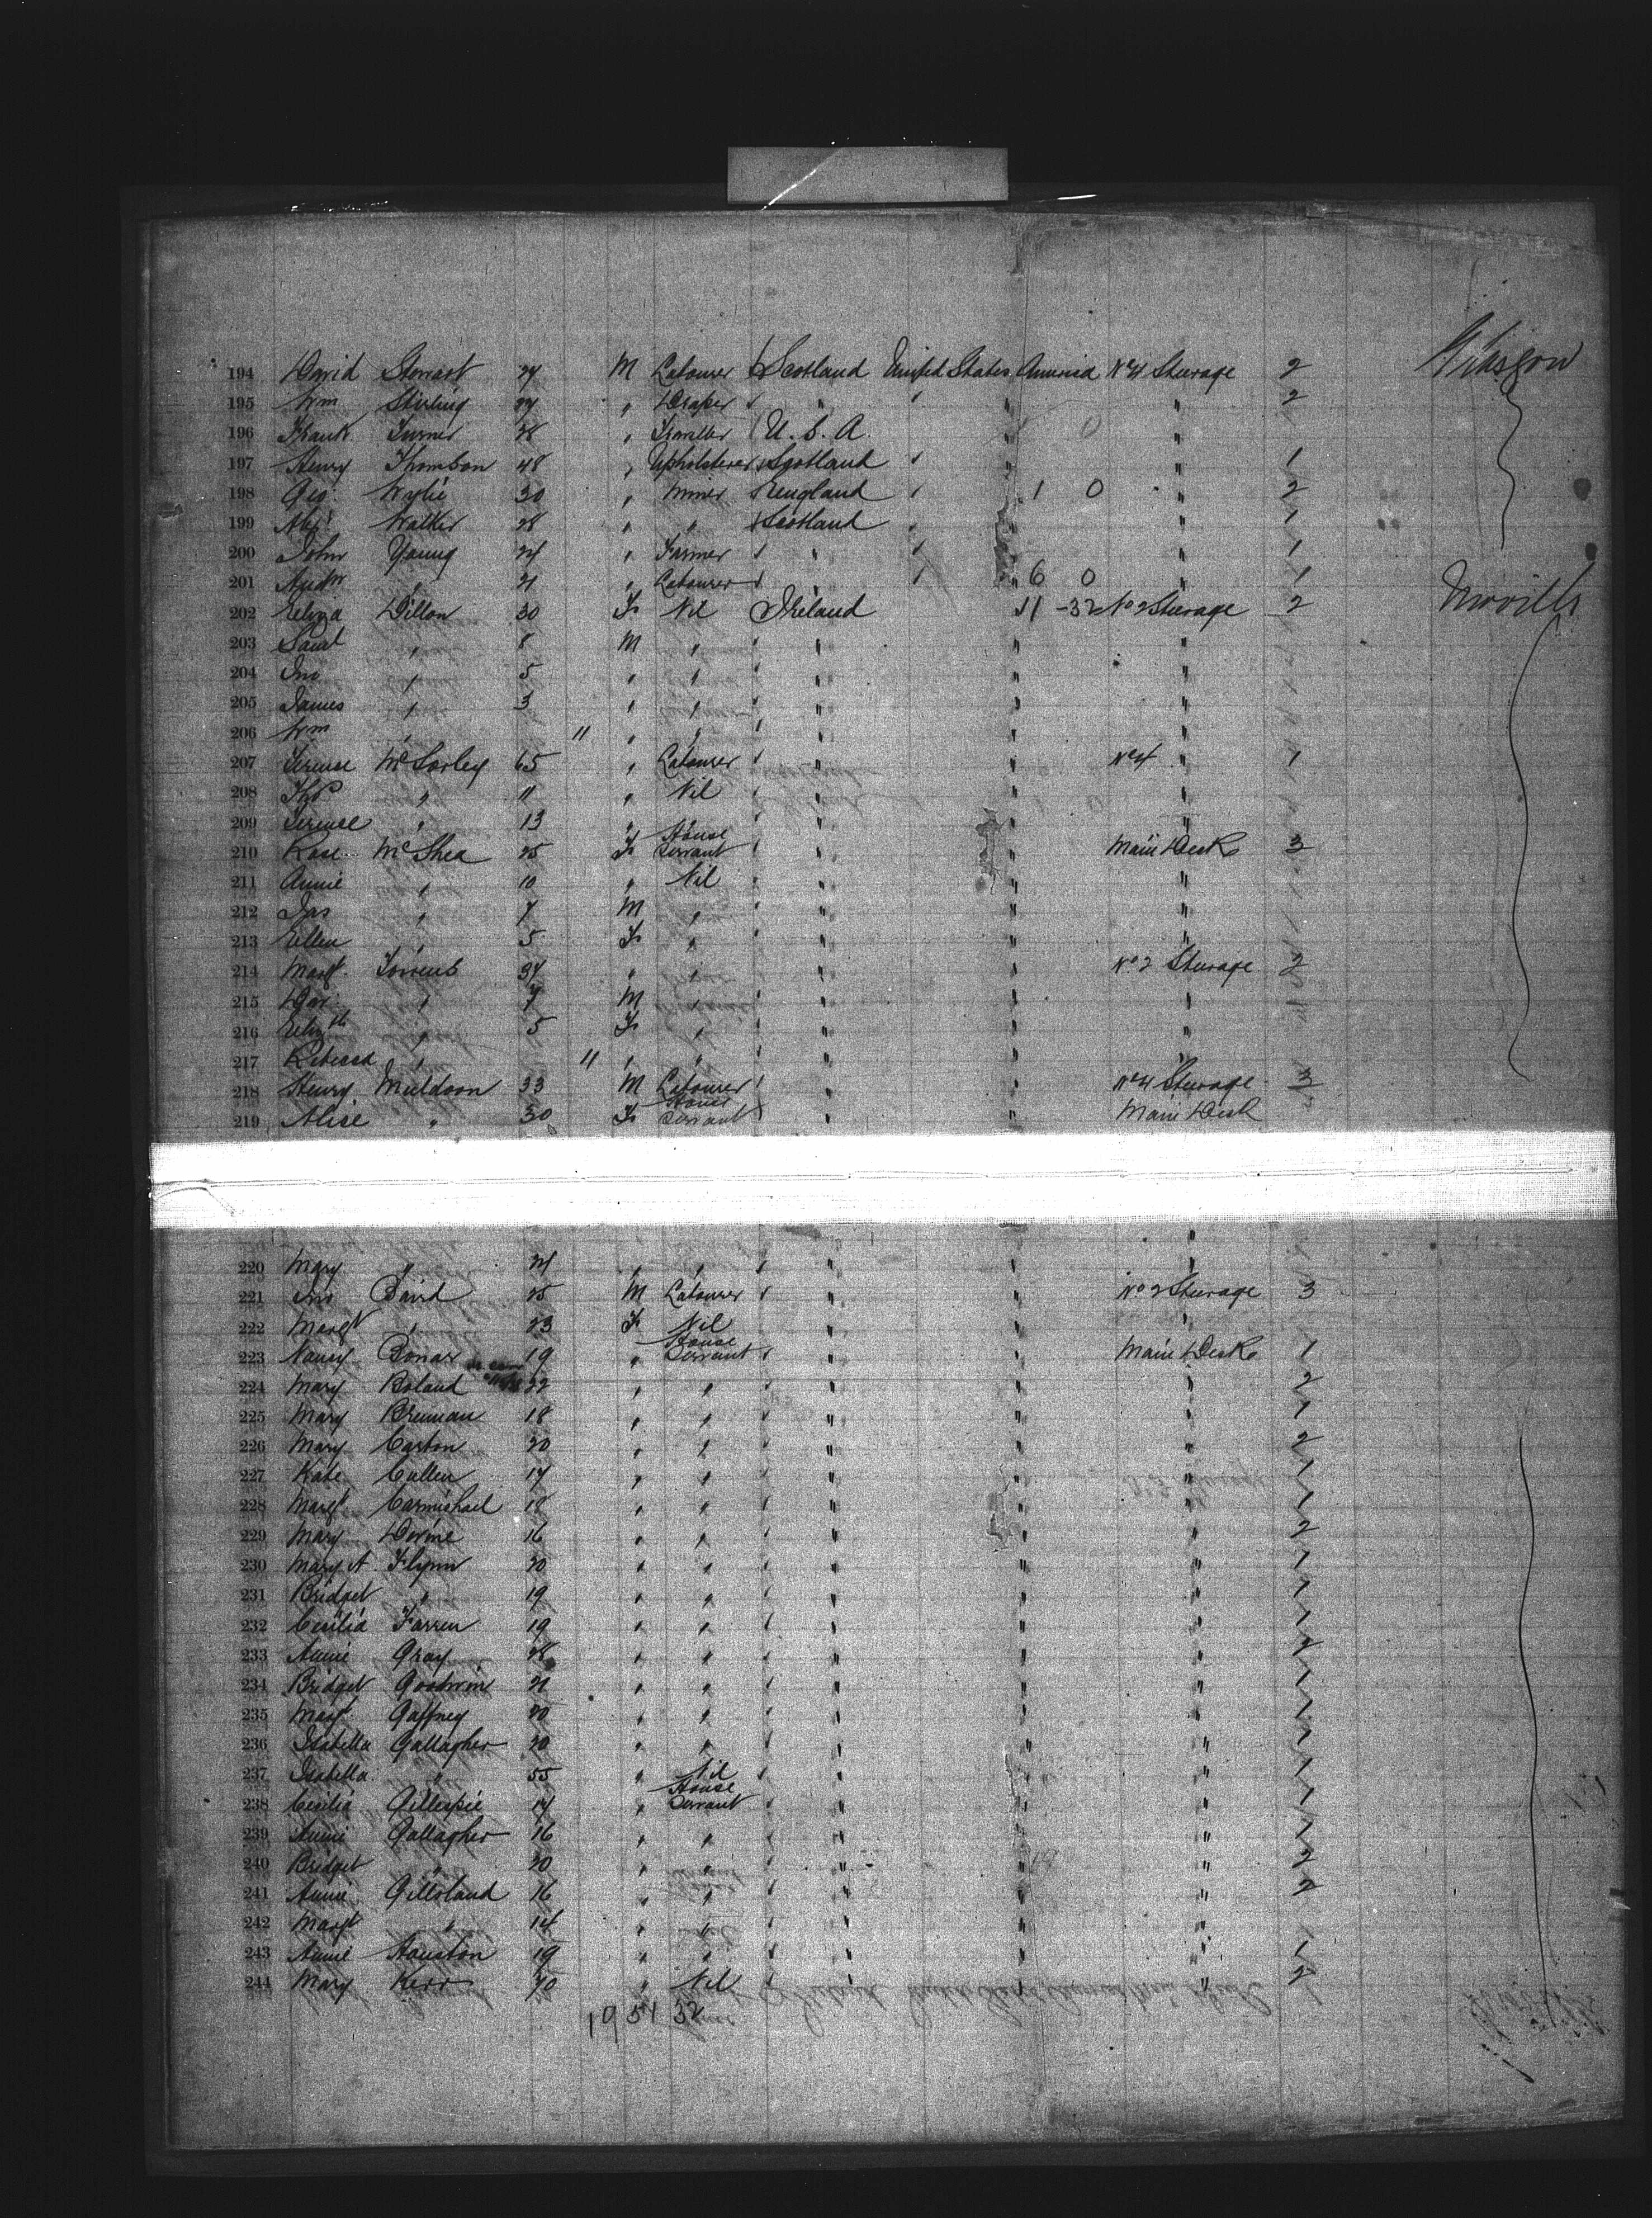 194 David Stewart 24 M Labourer Scotland United States America No 4 Steerage 2 Glasgow
195 Wm Stirling 24 " Draper " " 2
196 Frank Turner 28 " Traveller U. S. A. 0 "
197 Henry Thomson 48 " Upholsterer Scotland " 1
198 Geo. Wylie 30 " Miner England 1 0 " 2
199 Alexr Walker 28 " " Scotland 1
200 John Young 24 " Farmer " 1
201 Andw " 21 " Labourer 6 0 " 1
202 Eliza Dillon 30 F Nil Ireland 11 - 32 No 2 Steerage 2 Moville
203 Saml " 8 M " " " "
204 Jno " 5 " " " " "
205 James " 3 " " " " "
206 Wm " 11 " " " " "
207 Terence McSorley 65 " Labourer " " No 4 " 1
208 Thos " 11 " Nil " " "
209 Terence " 13 " " " " "
210 Rose McShea 25 F House Servant " " Main Deck 3
211 Annie " 10 " Nil " " "
212 Jas " 7 M " " " "
213 Ellen " 5 F " " " "
214 Margt Torrens 34 " " " " No 2 Steerage 2
215 " 7 M " " " "
216 Elizth " 5 F " " " "
217 Rebecca " 11 " " " " "
218 Henry Muldoon 33 M Labourer " " No 4 Steerage 3
219 Alice " 30 F House Servant " " Main Deck
220 Mary " 21 " " " " "
221 Jno David 25 M Labourer " " No 2 Steerage 3
222 Margt " 23 F Nil " " "
223 Nancy Bonar 19 " House Servant " " Main Deck 1
224 Mary Boland 22 " " " " " 2
225 Mary Brennan 18 " " " " " 1
226 Mary Carton 20 " " " " " 2
227 Kate Cullen 17 " " " " " 1
228 Margt Carmichael 18 " " " " " 1
229 Mary Devine 16 " " " " " 2
230 Mary A. Flynn 20 " " " " " 1
231 Bridget " 19 " " " " " 1
232 Cecilia Farren 19 " " " " " 1
233 Annie Gray 28 " " " " " 2
234 Bridget Goodwin 21 " " " " " 1
235 Margt Gaffney 20 " " " " " 1
236 Isabella Gallagher 20 " " " " " 1
237 Isabella " 55 " Nil " " " 1
238 Cecilia Gillespie 17 " House Servant " " " 1
239 Annie Gallagher 16 " " " " " 1
240 Bridget " 20 " " " " " 2
241 Annie Gilloland 16 " " " " " 2
242 Margt " 14 " " " " "
243 Annie Houston 19 " " " " " 1
244 Mary Kerr 70 " Nil " " " 2
19 51 32